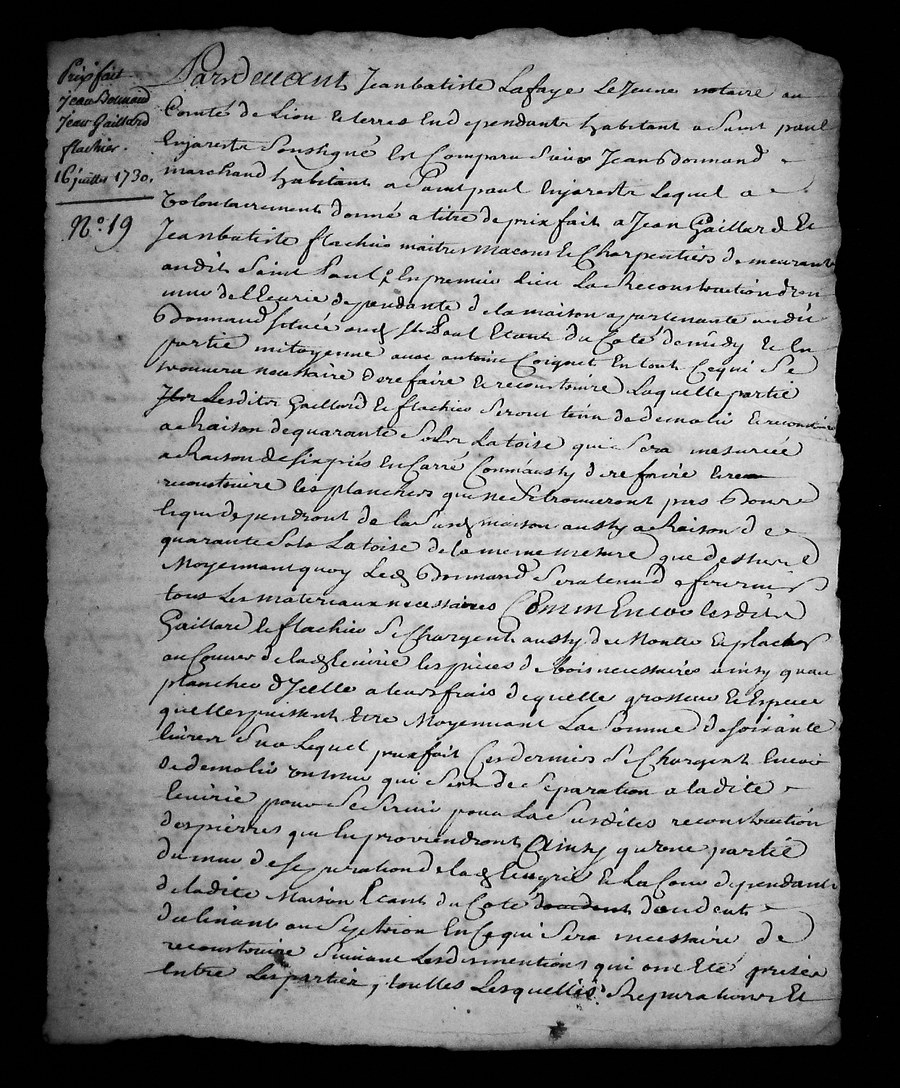 Prixfait
Jean Donnaud
Jean Gaillard
flachier.
16 juillet 1730.
N.° 19
Pardevant Jeanbatiste Lafaye Le Jeune notaire au
Comté de Lion & terres En dependants habitant a Saint paul
Enjarests Soussigné Est Comparu Sieur Jean Donnand
marchand habitant a Saint paul Enjarests Lequel a
Volontairement donné a titre de prix fait a Jean Gaillard Et
Jeanbatiste flachier maitres Macons & Charpentiers demeurants
audit Saint Paul, En premier lieu La Reconstruction d'un
mur de l'Ecurie dependante de la maison appartenante audit
Donnand Située aud St Paul Etant du Coté de midy & En
partie mitoyenne avec antoine En tout Cequi Se
trouvera necessaire de refaire & reconstruire Laquelle partie
Lesdits Gaillard & flachier Seront tenu de demolir & reconstruire
a Raison de quarante Sols La toise qui Sera mesurée
a Raison de Six piés En Carré Comme aussy de refaire
reconstruire les planchers qui ne Se trouveront pas Bons
Et qui dependront de la Susd maison aussy a Raison de
quarante Sols La toise de la meme mesure que dessus
Moyennant quoy Led Donnand Sera tenu de fournir
tous Les materiaux necessaires Comm'Encor lesdits
Gaillard & flachier Se Chargent aussy de Monter & placer
au Couvert de lad Ecurie les pièces de bois necessaires ainsy qu'au
plancher d'Icelle a leurs frais de quelle grosseur & Espece
quelles puissent Etre Moyennant La Somme de Soixante
livres Sur Lequel prix fait Ces derniers Se Chargent Encor
de demolir un mur qui Sert de Separation a ladite
Ecurie pour Se Servir pour La Susdites reconstruction
des pierres qui En proviendront Ainsy qu'une partie
du mur de Separation de lad Ecuyrie & La Cour dependante
de ladite Maison Etant du Coté d'occident
au Septrion En Cequi Sera necessaire de
reconstruire Suivant Les dimentions qui ont Eté prises
Entre Les partier, touttes Lesquelles Reparations Et